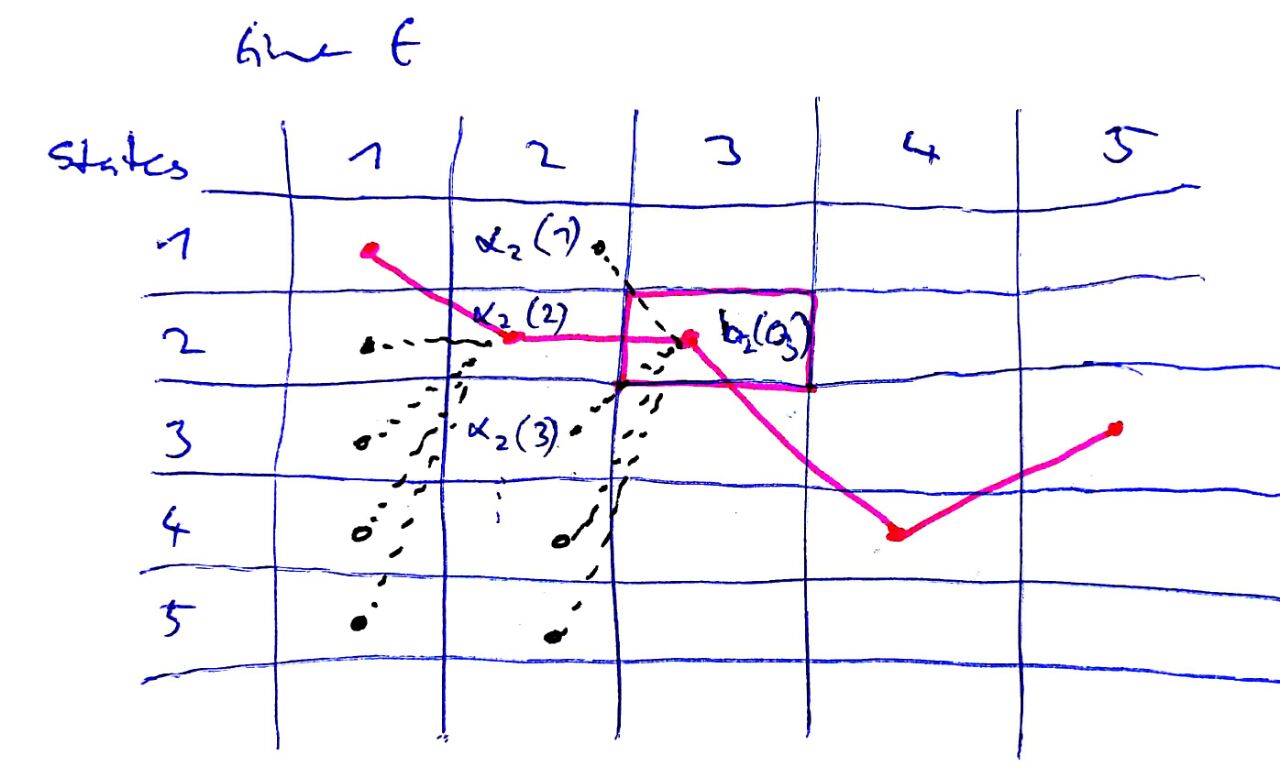 time t
States 1 2 3 4 5
1 α₂(1)
2 α₂(2) b₂(O₃)
3 α₂(3)
4
5